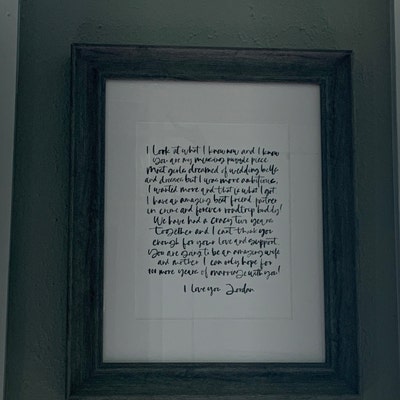 I look at what I know now and I know
you are my missing puzzle piece
Most girls dreamed of wedding bells
and dresses but I was more ambitious.
I wanted more and that is what I got
I have an amazing best friend, partner
in crime and forever roadtrip buddy!
We have had a crazy two years
together and I can't thank you
enough for your love and support.
You are going to be an amazing wife
and mother I can only hope for
100 more years of marriage with you!
I love you Jordan